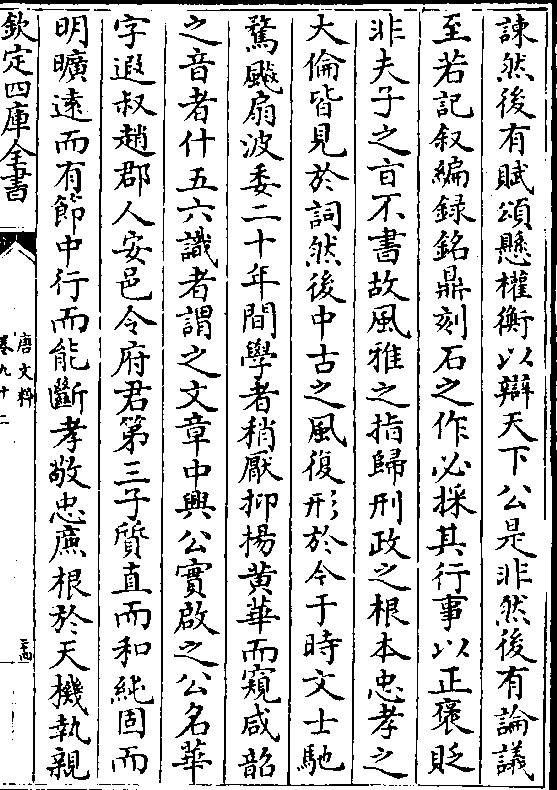 諫然後有賦頌懸權衡以辯天下公是非然後有論議
至若記叙編録銘鼎刻石之作必採其行事以正褒貶
非夫子之㫖不書故風雅之指歸刑政之根本忠孝之
大倫皆見於詞然後中古之風復形於今于時文士馳
騖飈扇波委二十年間學者稍厭抑揚黄華而窺咸韶
之音者什五六識者謂之文章中興公實啟之公名華
字遐叔趙郡人安邑令府君第三子質直而和純固而
明曠逺而有節中行而能斷孝敬忠㢘根於天機執親
欽定四庫全書
唐文粹
卷九十二